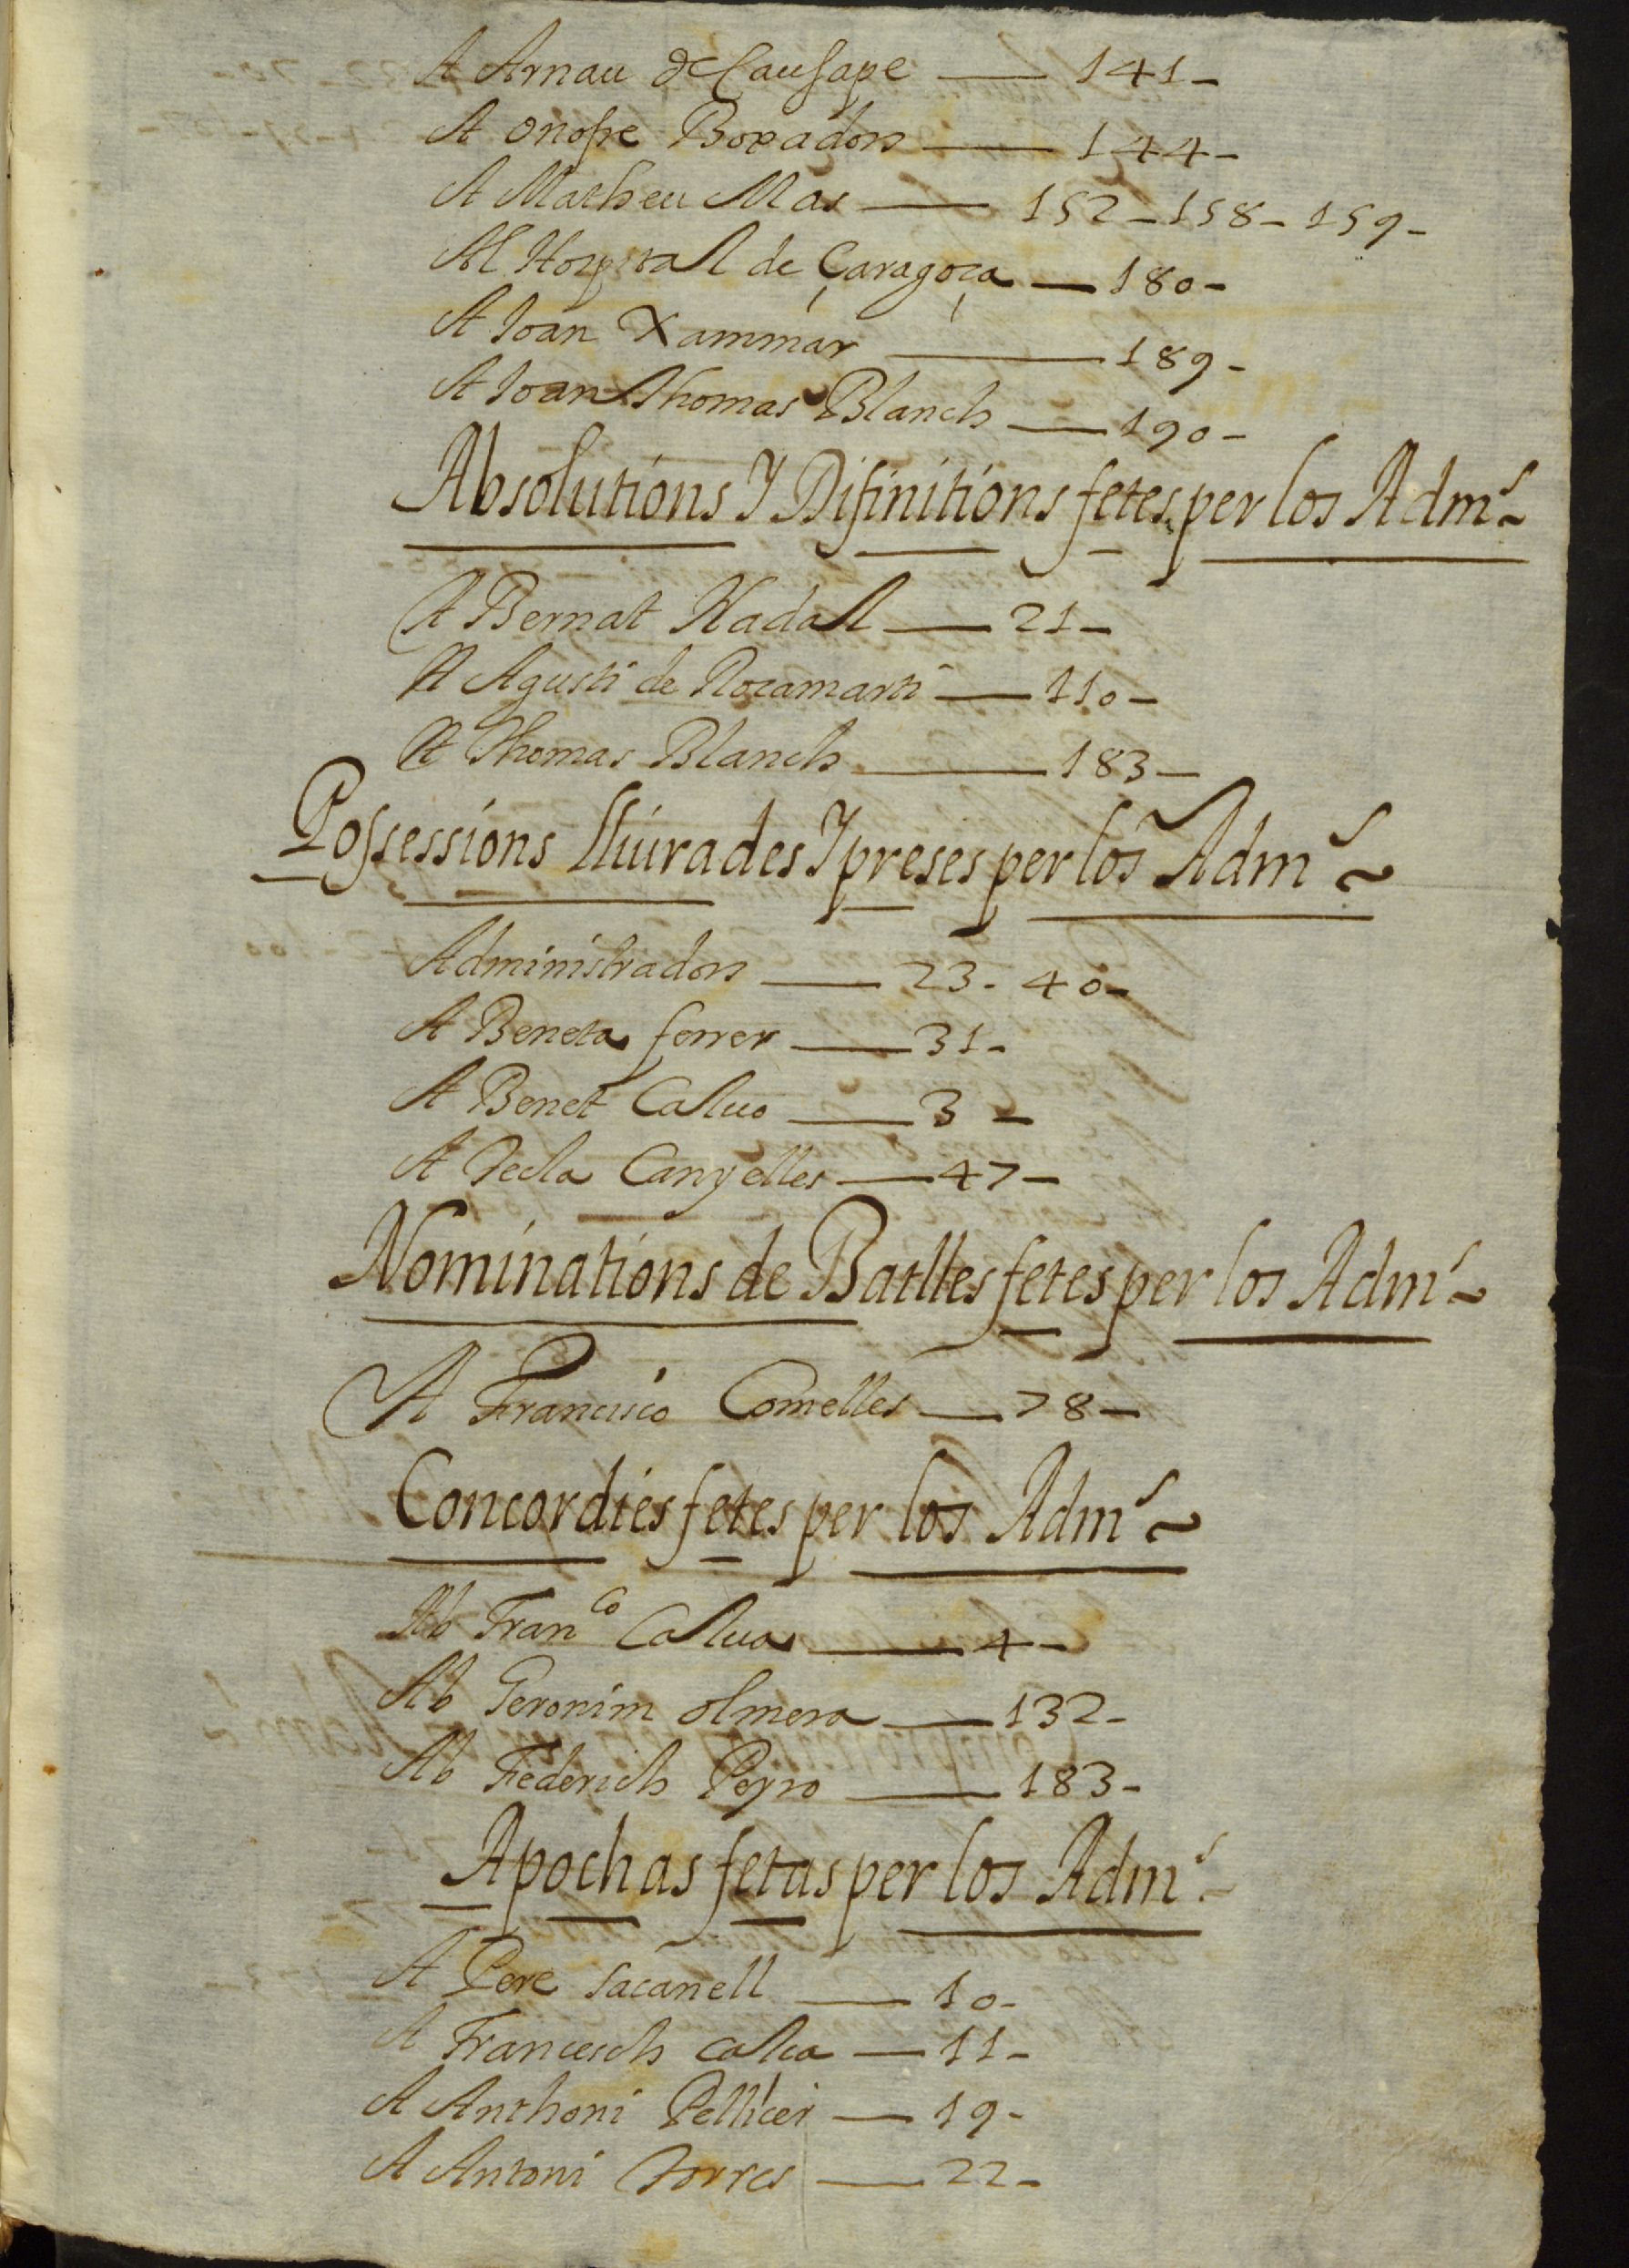 A Arnau de Causape — 141 -
A Onofre Boxadors — 144 -
A Matheu Mas — 152 - 158 - 159 -
Al Hospital de Çaragoça — 180 -
A Joan Xammar — 189 -
A Joan Thomas Blanch — 190 -
Absolutions Y Difinitions fetes per los Adm.s
A Bernat Nadal — 21 -
A Agusti de Rocamarti — 110 -
A Thomas Blanch — 183 -
Possessions lliurades Y preses per los Adm.s
Administradors — 23 - 40 -
A Beneta ferrer — 31 -
A Benet Caluo — 3 -
A Tecla Canyelles — 47 -
Nominations de Batlles fetes per los Adm.s
A Francisco Comelles — 78 -
Concordies fetes per los Adm.s
Ab Fran.co Caluo — 4 -
Ab Geronim Olmera — 132 -
Ab Federich — 183 -
Apochas fetas per los Adm.s
A Pere Sacanell — 10 -
A Francesch — 11 -
A Anthoni Pellicer — 19 -
A Antoni Torres — 22 -